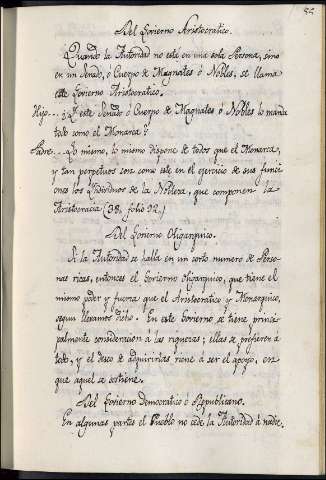 55
Del Govierno Aristocratico.
Quando la Autoridad no está en una sola Persona, sino
en un Senado, ó Cuerpo de Magnates ó Nobles, se llama
este Govierno Aristocratico.
Hijo... ¿Y este Senado ó Cuerpo de Magnates ó Nobles lo manda
todo como el Monarca?
Padre... Lo mismo, lo mismo dispone de todos que el Monarca,
y tan perpetuos son como este en el ejercicio de sus funcio
ones los Yndividuos de la Nobleza, que componen la
Aristocracia (38. folio 92.)
Del Govierno Oligarquico.
Si la Autoridad se halla en un corto numero de Perso-
nas ricas, entonces el Govierno Oligarquico, que tiene el
mismo poder y fuerza que el Aristocratico y Monarquico,
segun llevamos dicho. En este Govierno se tiene princi-
palmente consideracion á las riquezas; ellas se prefieren á
todo, y el deseo de adquirirlas viene á ser el apoyo, en
que aquel se sostiene.
Del Govierno Democratico ó Republicano.
En algunas partes el Pueblo no cede la Autoridad á nadie,